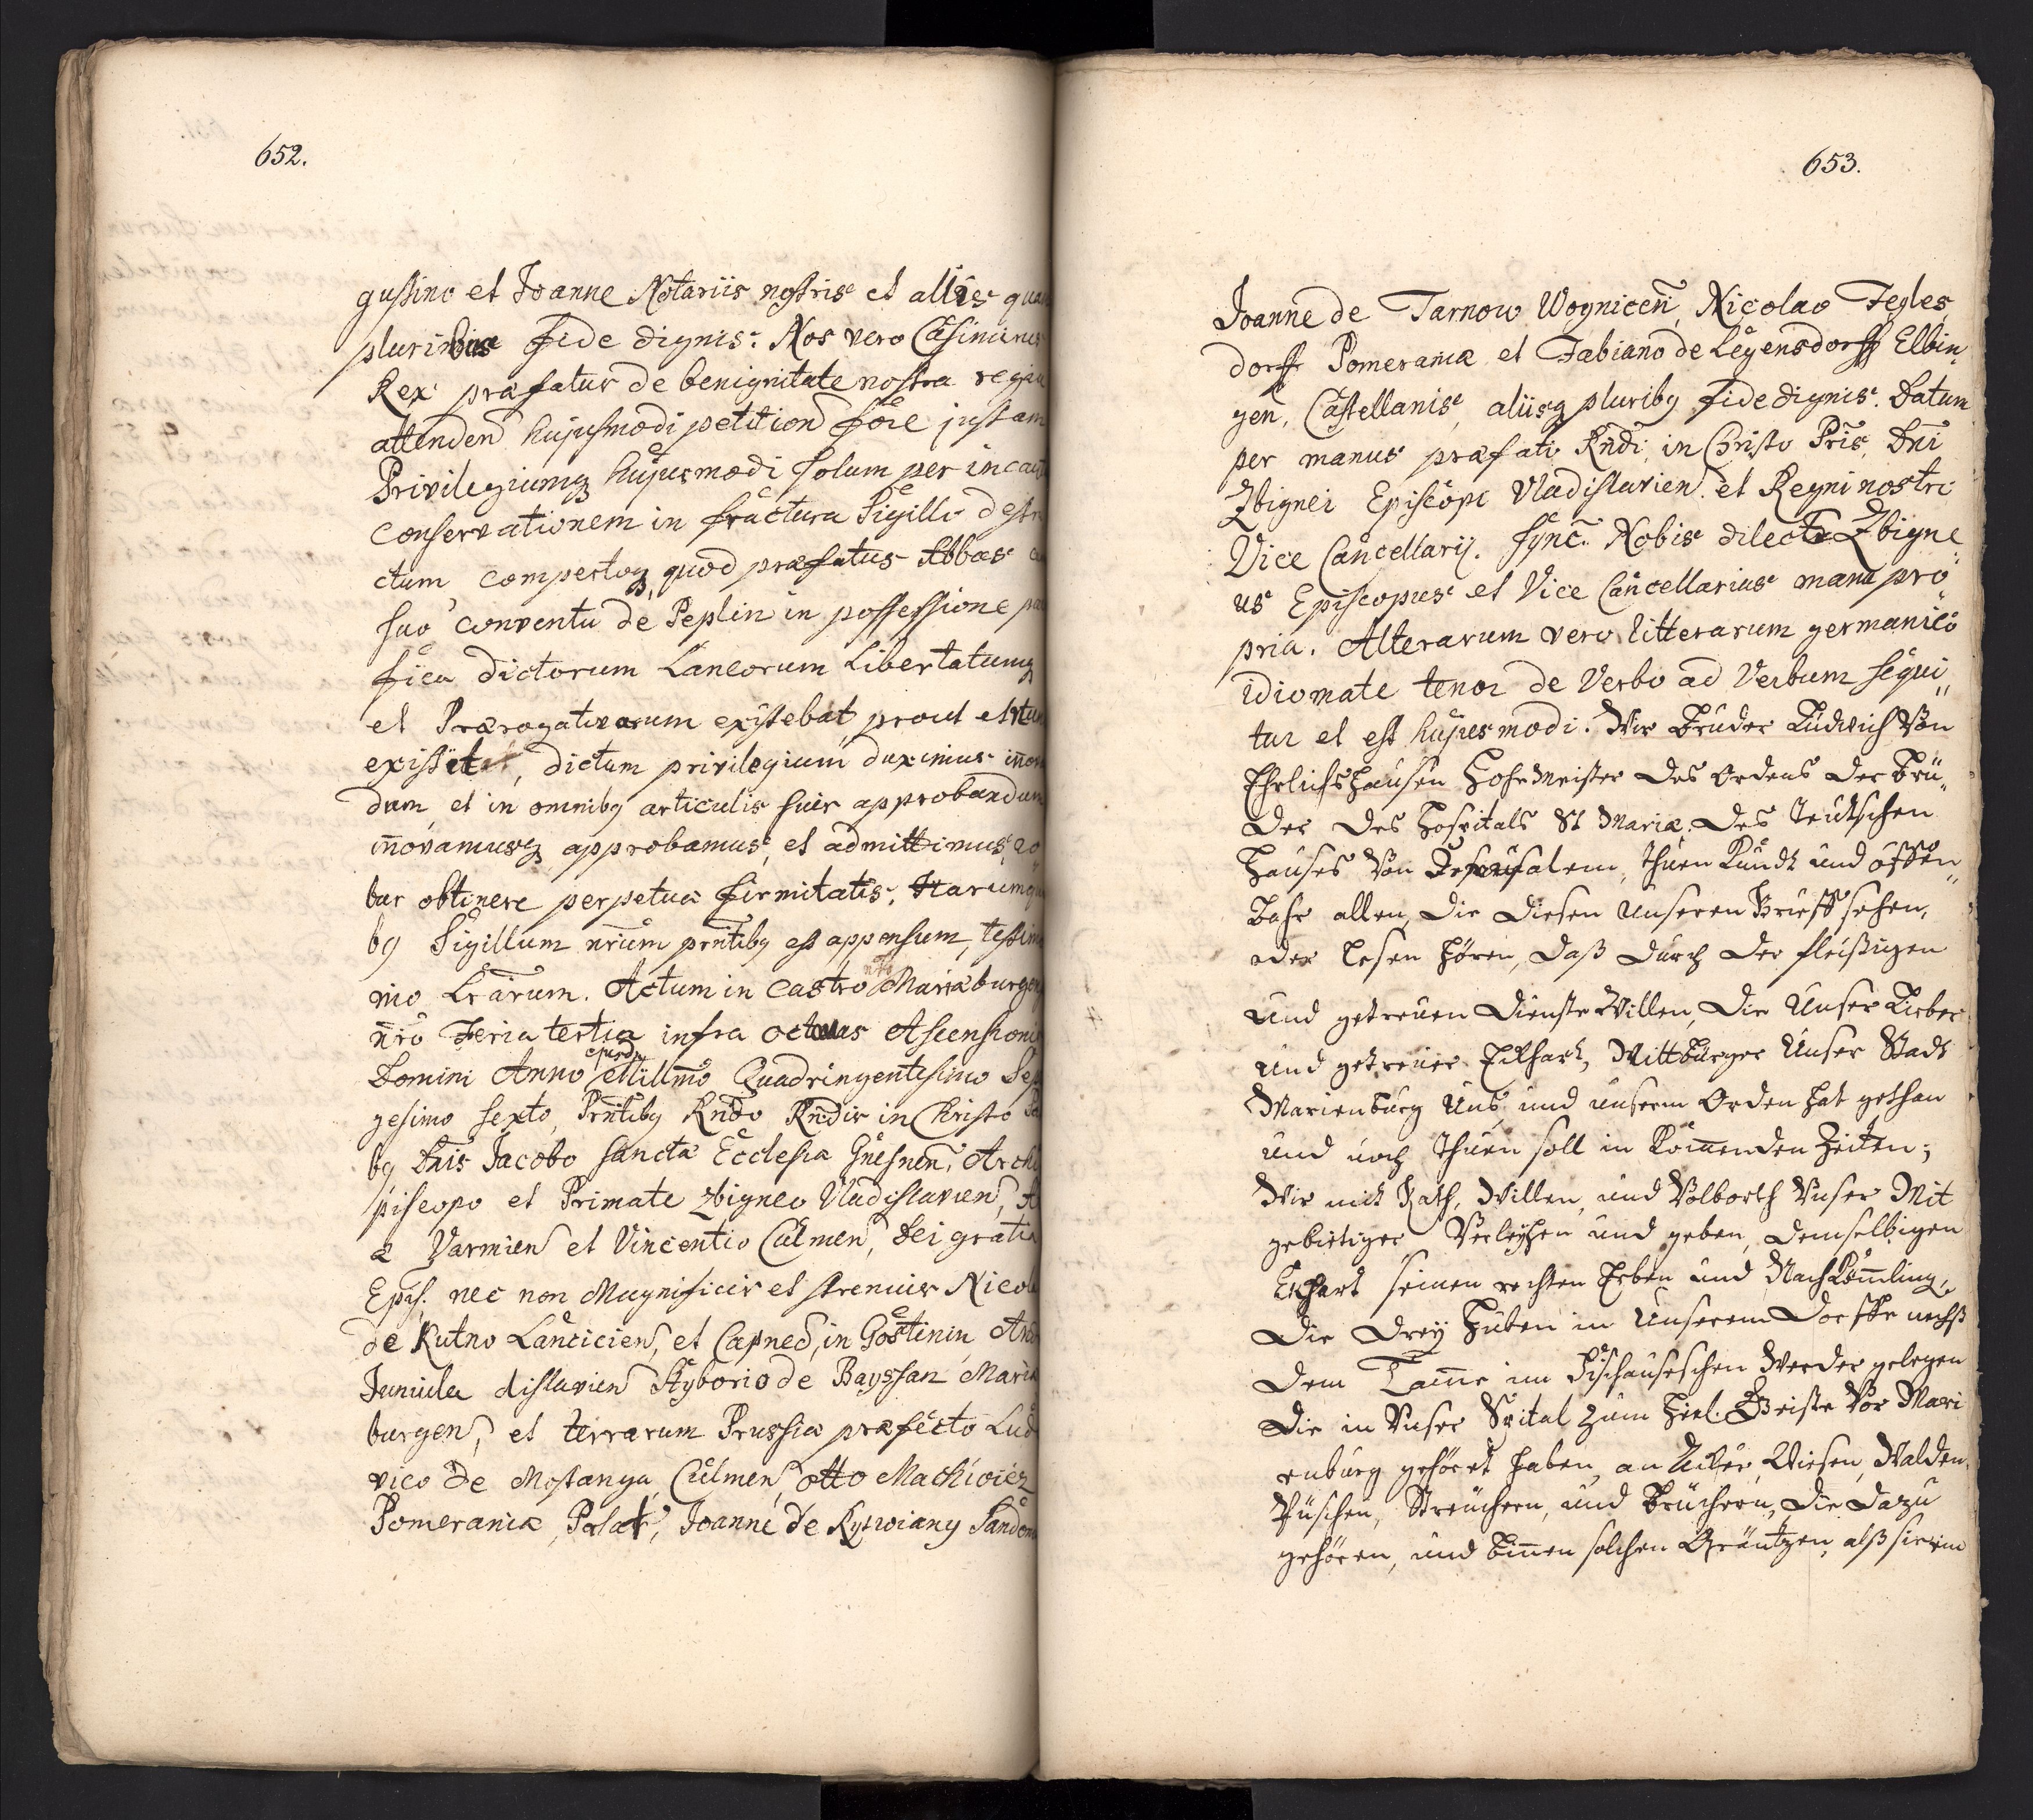 652.
gustino et Joanne Notariis nostris et aliis qua
pluribus fide dignis: Nos vero Casimirus
Rex præfatus de benignitate nostra regia
attenden hujusmodi petition fore justam
Privilegiumq hujusmodi solum per incaut
conservationem in fractura Sigilli destru
ctum, compertoq, quod præfatus Abbas cu
suo conventu de Peplin in possessione pa
fica dictorum Laneorum Libertatumq
et Prærogativarum existebat, prout et
existit, dictum privilegium duximus iñov
dum et in omnibq articulis suis approbandum
iñovamusq approbamus, et admittimus, ro
bur obtinere perpetuæ firmitatis. Harumq
bq Sigillum nrūm prntibq est appensum, testimo
nio Lrārum. Actum in castro nrō Mariæburgen
nrō Feria tertia infra octavas Ascensionis
Domini Anno ejusd Millmō Quadringentesimo Sep
gesimo sexto, Prntibq Rndō Rndis in Christo Pa
bq Dnīs Jacobo Sancta Ecclesia Gnesnen, Archi
piscopo et Primate Zbigneo Vladislavien,
a Varmien et Vincentio Culmen, Dei gratia
Epis. nec non Magnificis et strenuis Nicola
de Kutno Lanciciens, et Capned, in Gostinin, And
Juniula dislavien Styborio de Bayssan Mariæ
burgen, et terrarum Prussia præfecto Lud
vico de Mostanga Culmen, otto Machiviez
Pomerania, Palat, Joanne de Rytwiany Sandom
653.
Joanne de Tarnow Woynicen, Nicolao Tegles
dorff Pomeraniæ et Fabiano de Legensdorff Elbin
gen, Castellanis, aliisq pluribq fide dignis. Datum
per manus præfati Rndi in Christo Pris, Dni
Zbignei Episcopi Vladislavien. et Regni nostri
Vice Cancellarij. sync. Nobis dilecto Zbigne
us Episcopus et Vice Cancellarius manu pro
pria. Alterarum vero litterarum germanico
idiomate tenor de Verbo ad Verbum sequi
tur et est hujusmodi. Wir Bruder Ludwich Von
Ehrlichshausen HohrMeister des Ordens der Brü
der des Hospitals St Mariæ des Teutschen
Hauses Von Jerusalem, thuen Kundt und offen
Bahr allen, die diesen Unseren Brieff sehen,
oder lesen hören, daß durch der fleißigen
und getreuen dienste Willen, die Unser Lieber
und getreuer Eckhart, Mittbürger Unser Stadt
Marienburg Uns, und unserm Orden hat gethan
und noch thuen soll in Kom̄enden Zeiten;
Wir mit Rath, Willen, und Volborth Unser Mit
gebietiger Verleyhen und geben, demselbigen
Eckhart seinen rechten Erben und Nachköm̄ling,
die drey Huben in Unserem Dorffe nechst
dem Tam̄e im Fischauschen Werder gelegen
die in Unser Spital zum Heel. Geiste Vor Mari
enburg gehöret haben, an Acker, Wiesen, Walden
Püschen, Streüchern, und Brüchern, die dazu
gehören, und binnen solchen Gräntzen, alß sie im